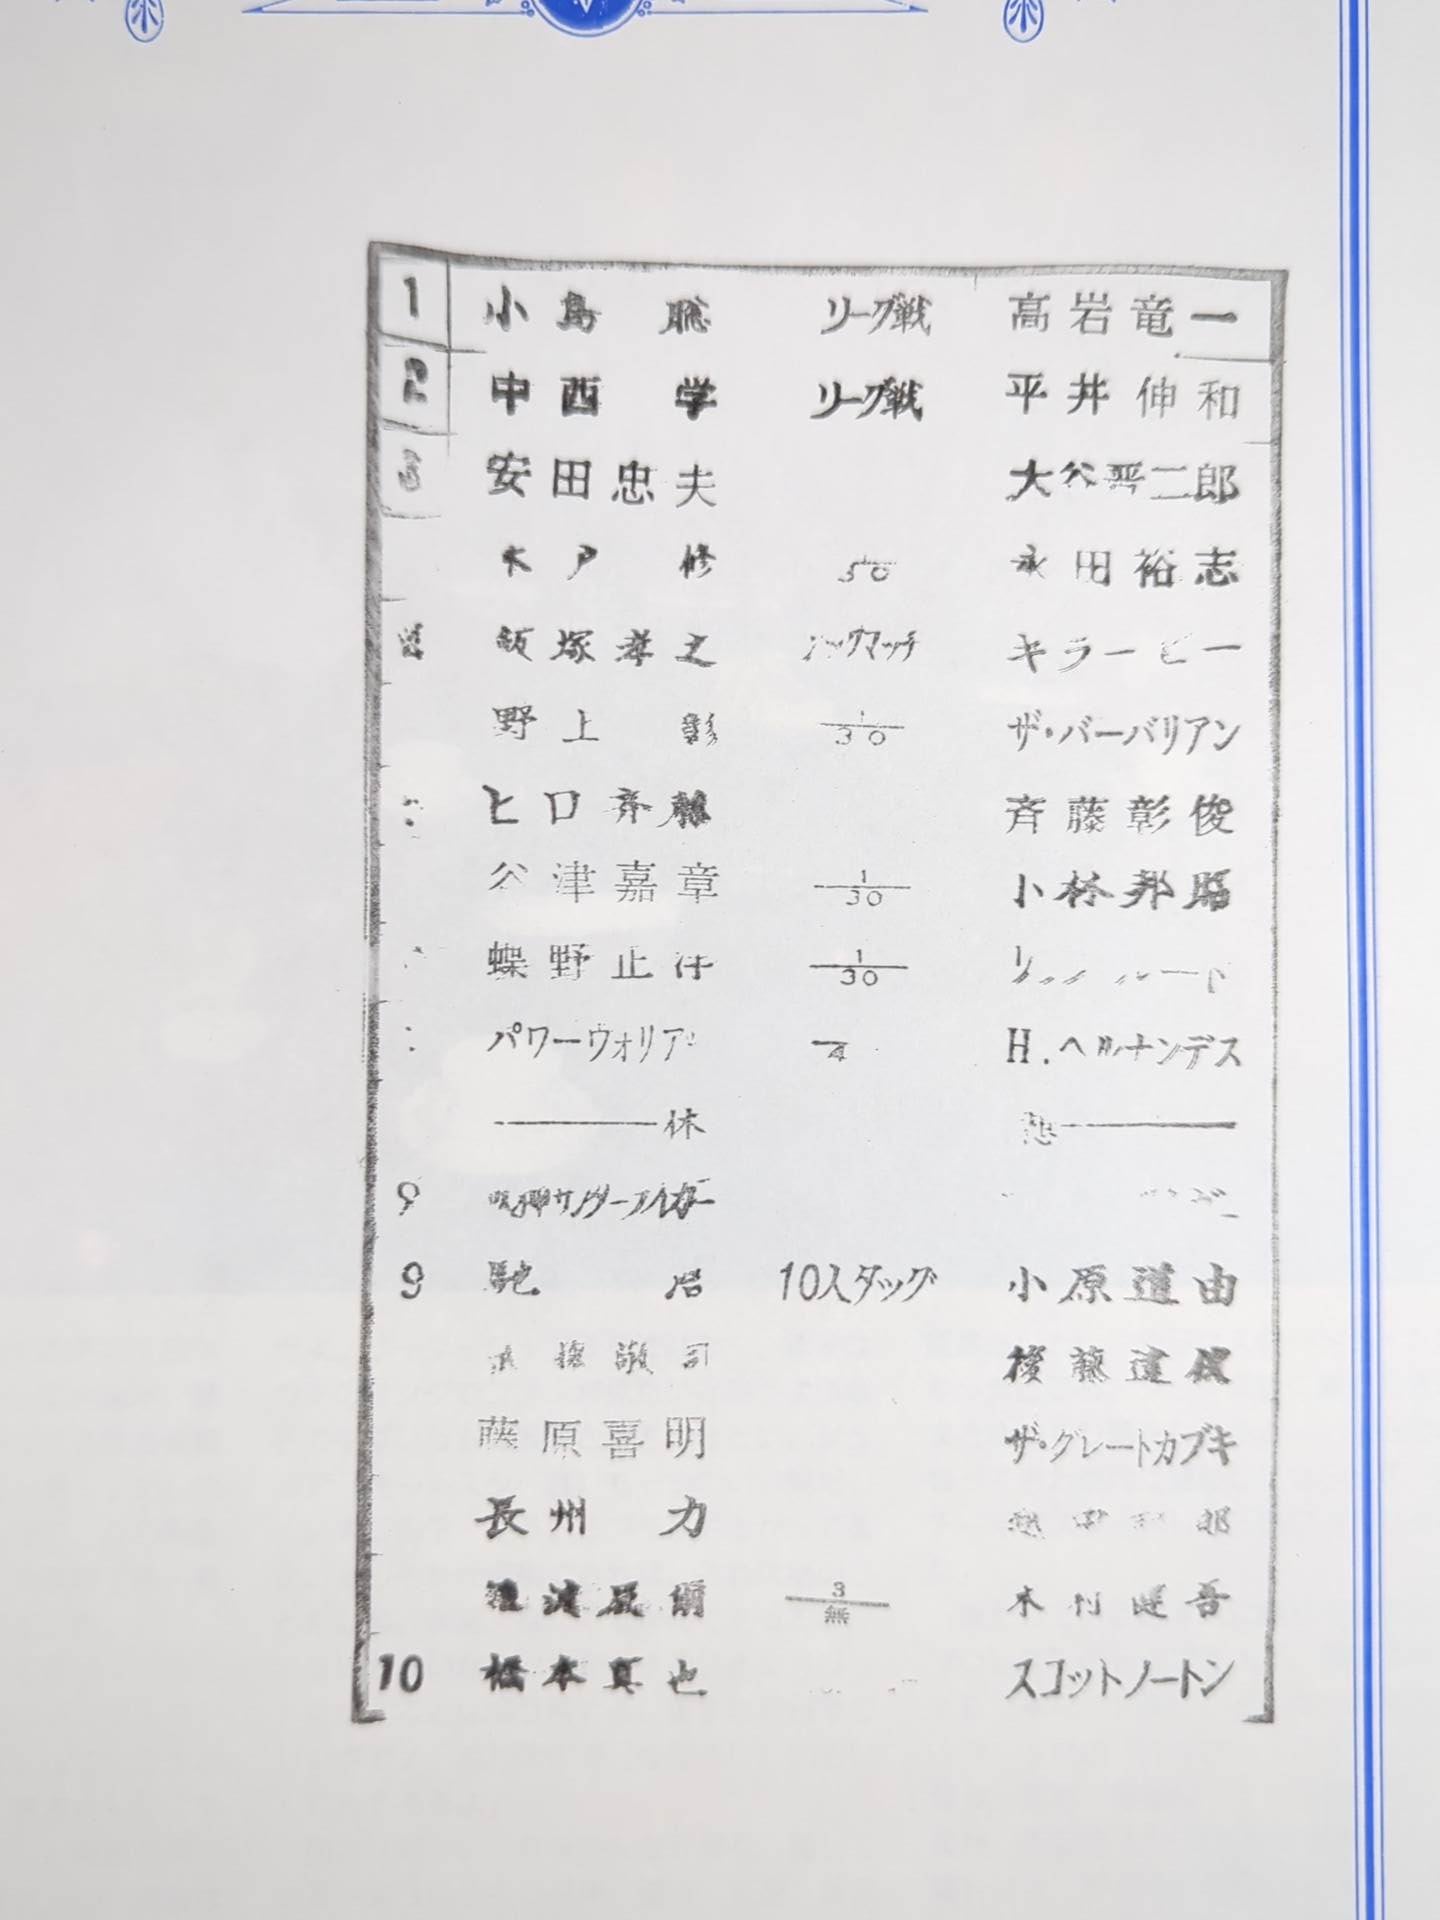 1 小島 聡 リーグ戦 高岩竜一
2 中西 学 リーグ戦 平井伸和
3 安田忠夫 大谷晋二郎
木戸 修 永田裕志
飯塚孝之 タッグマッチ キラービー
野上 彰 1/30 ザ・バーバリアン
ヒロ斉藤 斉藤彰俊
谷津嘉章 1/30 小林邦昭
蝶野正洋 1/30
パワーウォリアー H.ヘルナンデス
休 憩
獣神サンダーライガー
9 馳 浩 10人タッグ 小原道由
後藤達俊
藤原喜明 ザ・グレートカブキ
長州 力
藤波辰爾 3/無 木村健吾
10 橋本真也 スコットノートン